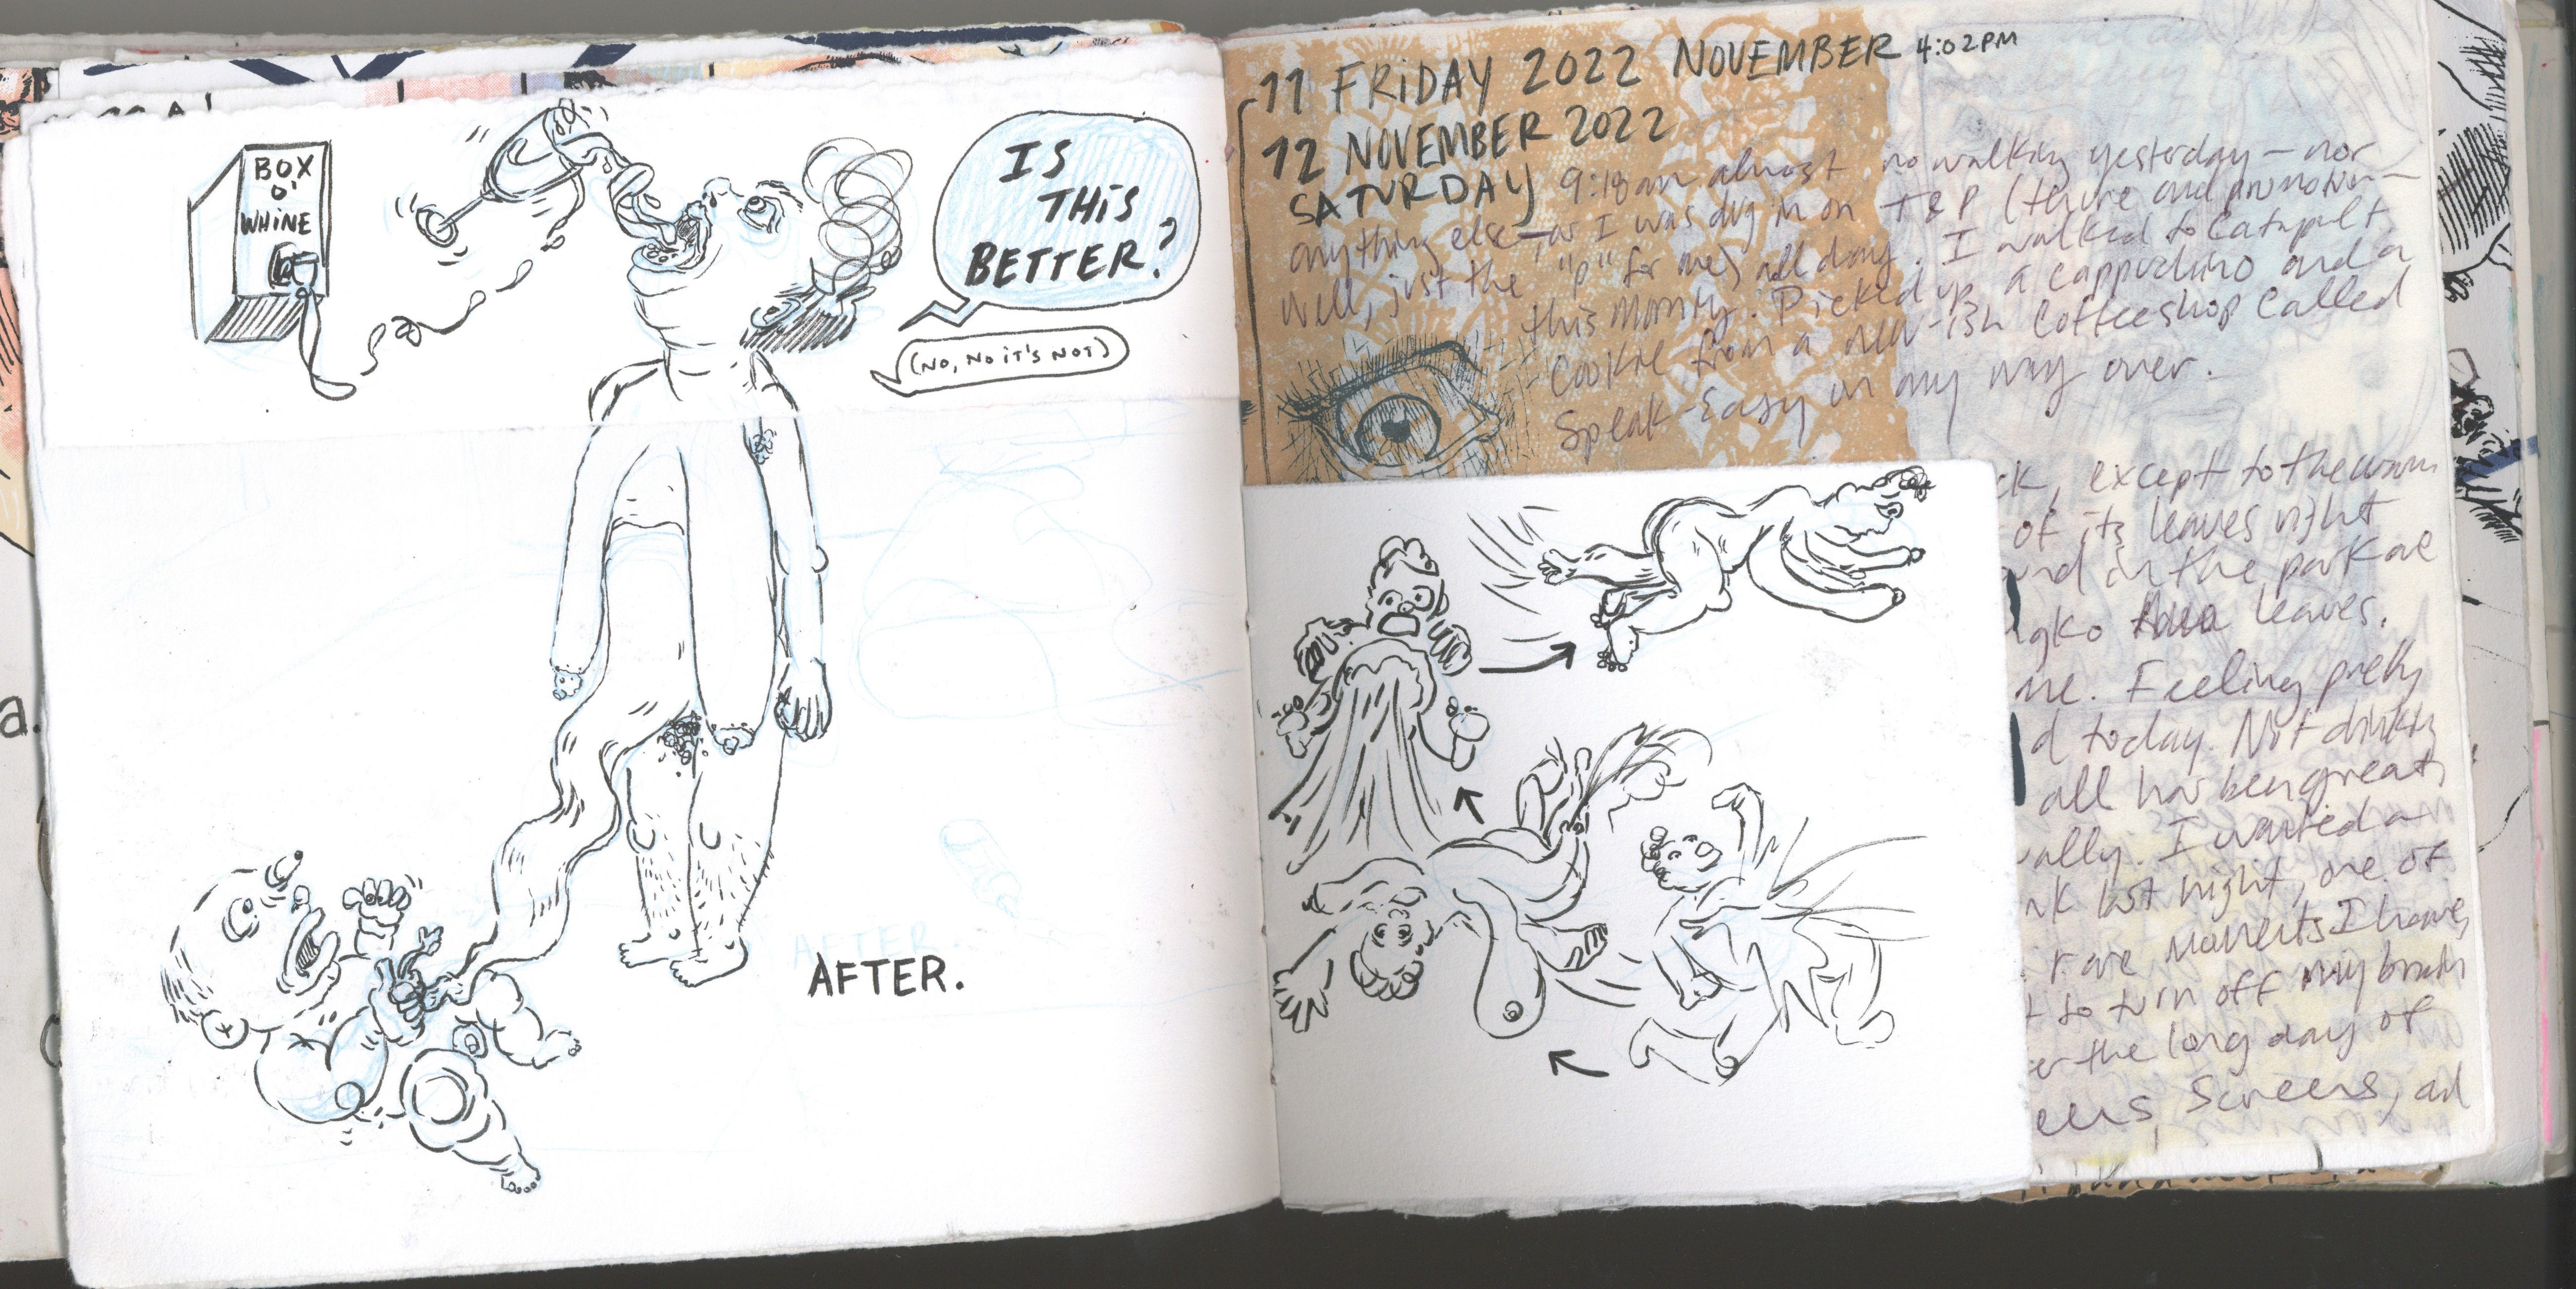 BOX
O'
WHINE
IS
THIS
BETTER?
(NO, NO IT'S NOT)
AFTER.
a.
11 FRIDAY 2022 NOVEMBER 4:02PM
12 NOVEMBER 2022
SATURDAY 9:18am almost no walking yesterday — nor
anything else — as I was dug in on T&P (tenure and promotion —
well, just the "p" for me) all day. I walked to Catapult
this morning. Picked up a cappuchino and a
cookie from a new-ish coffeeshop called
Speak-Easy on my way over.
ck, except to the
of its leaves right
and in the park are
ngko leaves.
me. Feeling pretty
d today. Not drinking
all has been great,
ually. I wanted a
nk last night, one of
rare moments I have
t to turn off my brain
er the long day of
eens, screens, ad